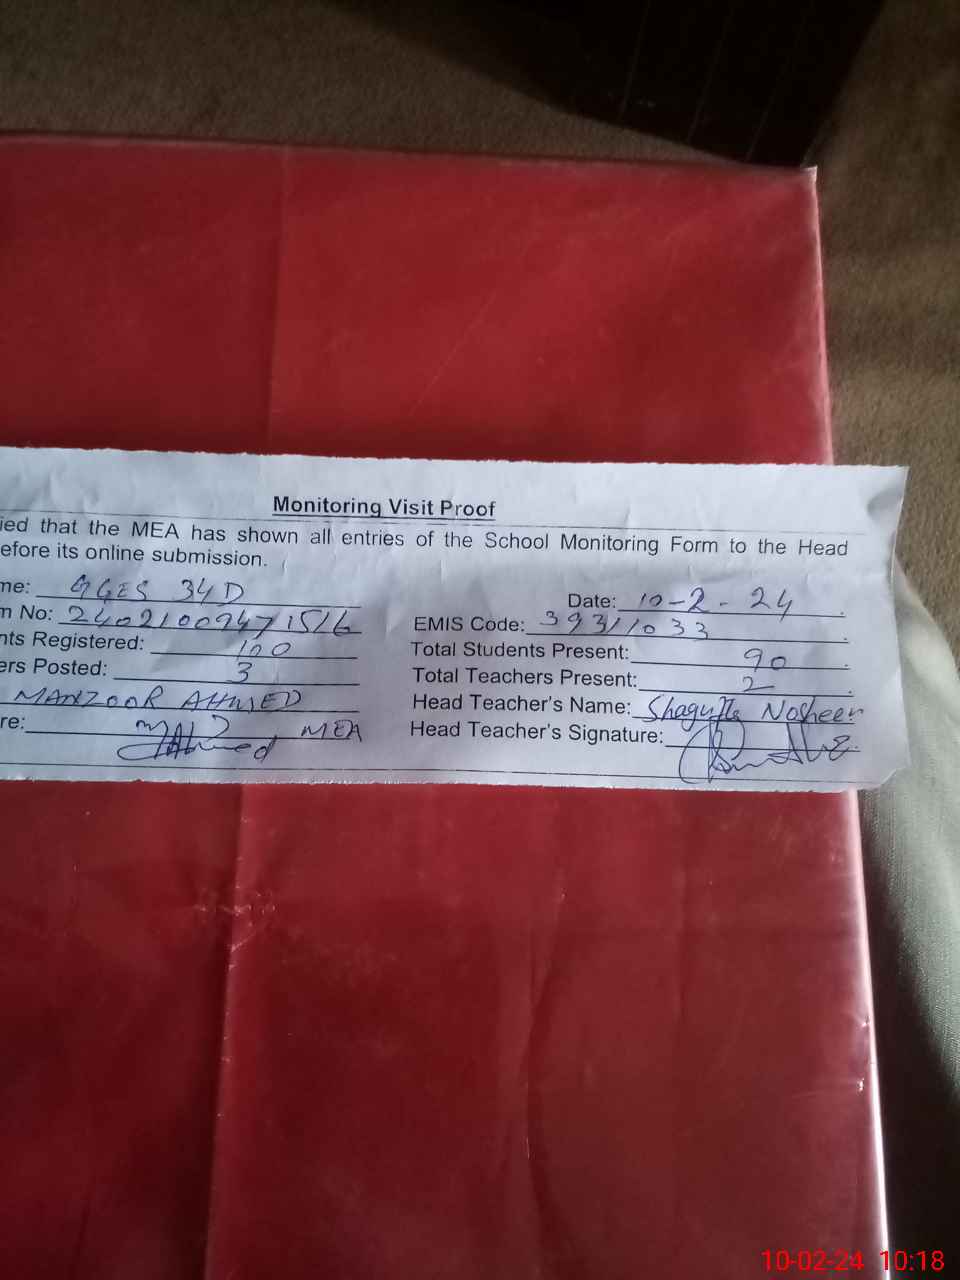 Monitoring Visit Proof
ied that the MEA has shown all entries of the School Monitoring Form to the Head
efore its online submission.
me: GGES 34D Date: 10-2-24
m No: EMIS Code: 39311033
nts Registered: 100 Total Students Present: 90
ers Posted: 3 Total Teachers Present: 2
MANZOOR AHMED Head Teacher's Name: Shagufta Nosheen
re: MAhmed MEA Head Teacher's Signature:
10-02-24 10:18